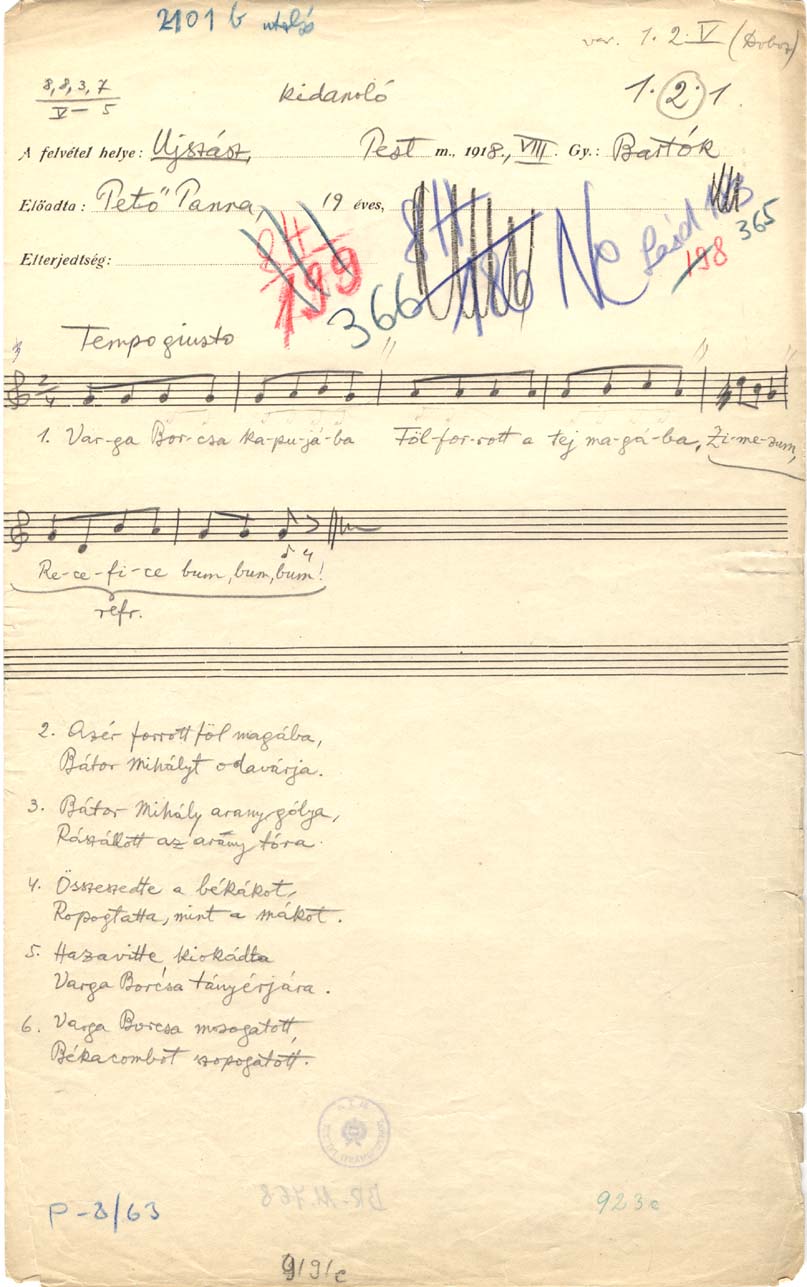 2101 b utolsó
var. 1. 2. V (Doboz)
8, 8, 3, 7
V— 5
kidanoló
1. 2. 1.
A felvétel helye: Ujszász, Pest m., 1918., VIII. Gy.: Bartók
Előadta: Pető Panna, 19 éves,
Elterjedtség:
811
199
366
811
186
No
Lásd
198
365
Tempo giusto
2
4
1. Var-ga Bor-csa ka-pu-já-ba Föl-for-rott a tej ma-gá-ba, Zi-me-zum,
Re-ce-fi-ce bum, bum, bum!
refr.
2. Azér forrott föl magába,
Bátor Mihályt odavárja.
3. Bátor Mihály arany gólya,
Rászállott az arany tóra.
4. Összeszedte a békákot,
Ropogtatta, mint a mákot.
5. Hazavitte kiokádta
Varga Borcsa tányérjára.
6. Varga Borcsa mosogatott,
Békacombot szopogatott.
P-8/63
BR-11.768
923c
9191c